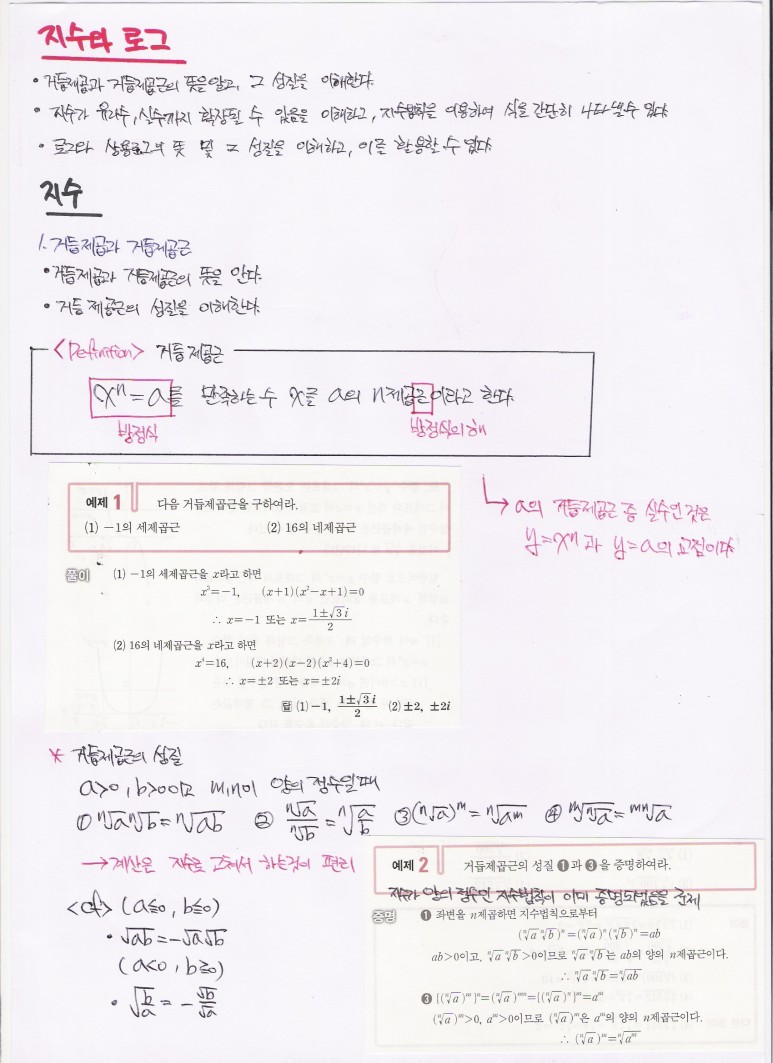 지수와 로그
• 거듭제곱과 거듭제곱근의 뜻을 알고, 그 성질을 이해한다.
• 지수가 유리수, 실수까지 확장될 수 있음을 이해하고, 지수법칙을 이용하여 식을 간단히 나타낼 수 있다
• 로그와 상용로그의 뜻 및 그 성질을 이해하고, 이를 활용할 수 있다.
지수
1. 거듭제곱과 거듭제곱근
• 거듭제곱과 거듭제곱근의 뜻을 안다.
• 거듭제곱근의 성질을 이해한다.
<Definition> 거듭제곱근
xⁿ=a를 만족하는 수 x를 a의 n제곱근이라고 한다.
방정식 방정식의 해
예제 1 다음 거듭제곱근을 구하여라.
(1) −1의 세제곱근 (2) 16의 네제곱근
→ a의 거듭제곱근 중 실수인 것은
y=xⁿ과 y=a의 교점이다.
풀이 (1) −1의 세제곱근을 x라고 하면
x³=−1, (x+1)(x²−x+1)=0
∴ x=−1 또는 x=(1±√3 i)/2
(2) 16의 네제곱근을 x라고 하면
x⁴=16, (x+2)(x−2)(x²+4)=0
∴ x=±2 또는 x=±2i
답 (1) −1, (1±√3 i)/2 (2) ±2, ±2i
* 거듭제곱근의 성질
a>0, b>0이고 m, n이 양의 정수일 때
① ⁿ√a ⁿ√b = ⁿ√ab ② ⁿ√a/ⁿ√b = ⁿ√(a/b) ③ (ⁿ√a)ᵐ = ⁿ√aᵐ ④ ᵐ√ⁿ√a = ᵐⁿ√a
→ 계산은 지수로 고쳐서 하는것이 편리
예제 2 거듭제곱근의 성질 ❶과 ❸을 증명하여라.
지수가 양의 정수인 지수법칙이 이미 증명되었음을 전제
증명 ❶ 좌변을 n제곱하면 지수법칙으로부터
(ⁿ√a ⁿ√b)ⁿ=(ⁿ√a)ⁿ(ⁿ√b)ⁿ=ab
ab>0이고, ⁿ√a ⁿ√b>0이므로 ⁿ√a ⁿ√b는 ab의 양의 n제곱근이다.
∴ ⁿ√a ⁿ√b=ⁿ√ab
❸ {(ⁿ√a)ᵐ}ⁿ=(ⁿ√a)ᵐⁿ={(ⁿ√a)ⁿ}ᵐ=aᵐ
(ⁿ√a)ᵐ>0, aᵐ>0이므로 (ⁿ√a)ᵐ은 aᵐ의 양의 n제곱근이다.
∴ (ⁿ√a)ᵐ=ⁿ√aᵐ
<cf> (a≤0, b≤0)
• √ab=−√a√b
(a<0, b≥0)
• √(b/a) = −√b/√a